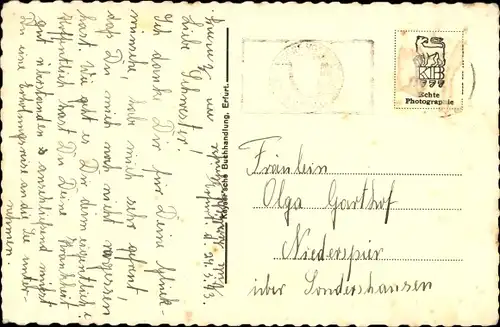 Erfurt, d. 24.3.43.
Liebe Schwester!
Ich danke Dir für Deine Glück-
wünsche, hab mich sehr gefreut,
daß Du mich noch nicht vergessen
hast. Wie geht es Dir denn eigentlich?
Hoffentlich hast Du Deine Krankheit
gut überstanden u. anschließend mußt
Du eine Erholungsreise an die See unter-
nehmen.
Viele herzliche Grüße
Keyser'sche Buchhandlung, Erfurt.
KTB
Echte
Photographie
Fräulein
Olga Garthof
Niederspier
über Sondershausen